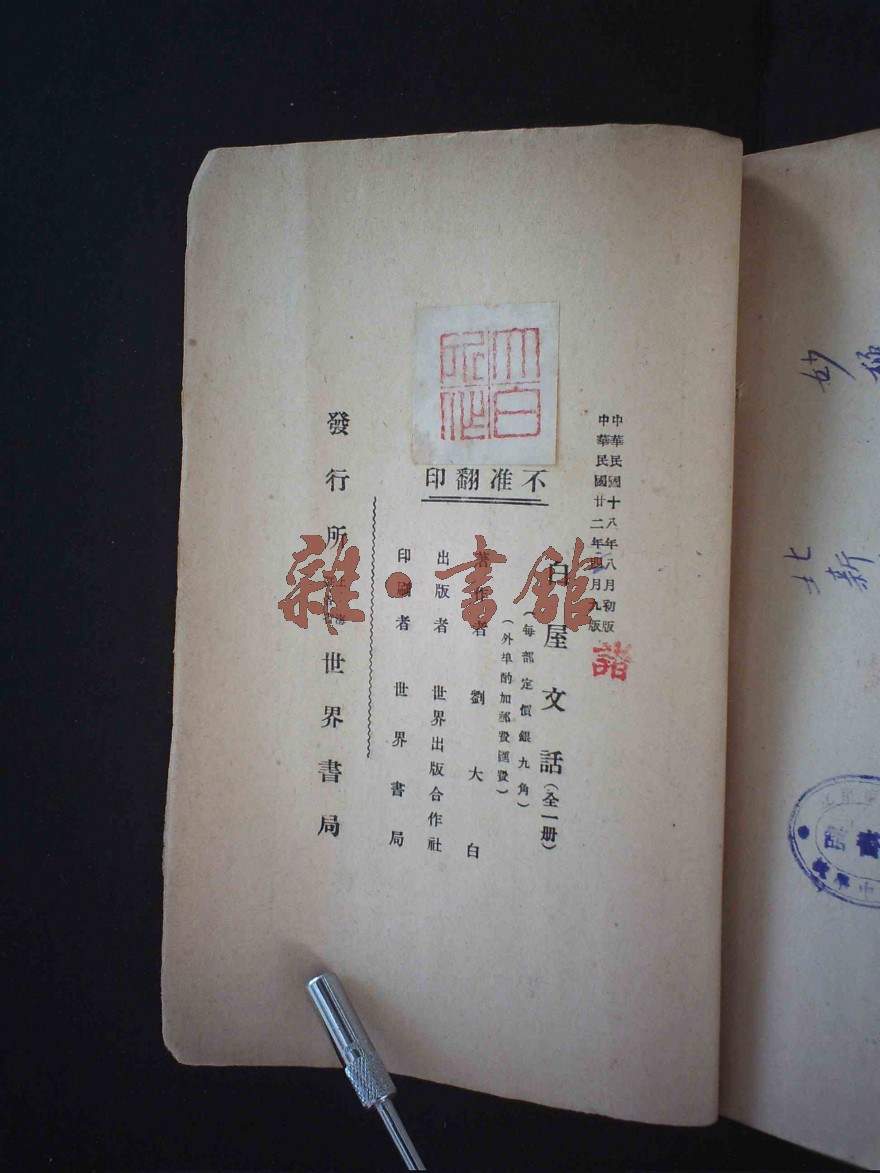 中華民國十八年八月初版
中華民國廿二年四月九版
白屋文話(全一册)
(每部定價銀九角)
(外埠酌加郵費匯費)
不准翻印
著作者 劉大白
出版者 世界出版合作社
印刷者 世界書局
發行所 世界書局
大白
雜·書館
妙
北新